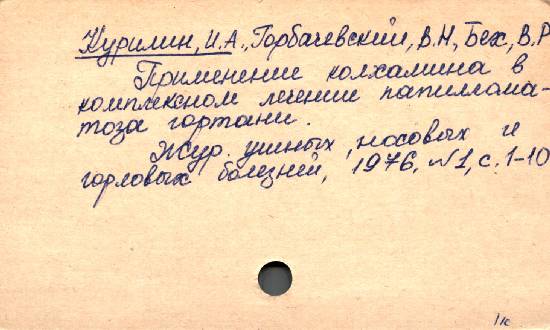 Курилин, И.А., Горбачевский, В.Н., Бех, В.Р
Применение колхамина в
комплексном лечении папиллома-
тоза гортани.
Жур. ушных, носовых и
горловых болезней, 1976, №1, с. 1-10